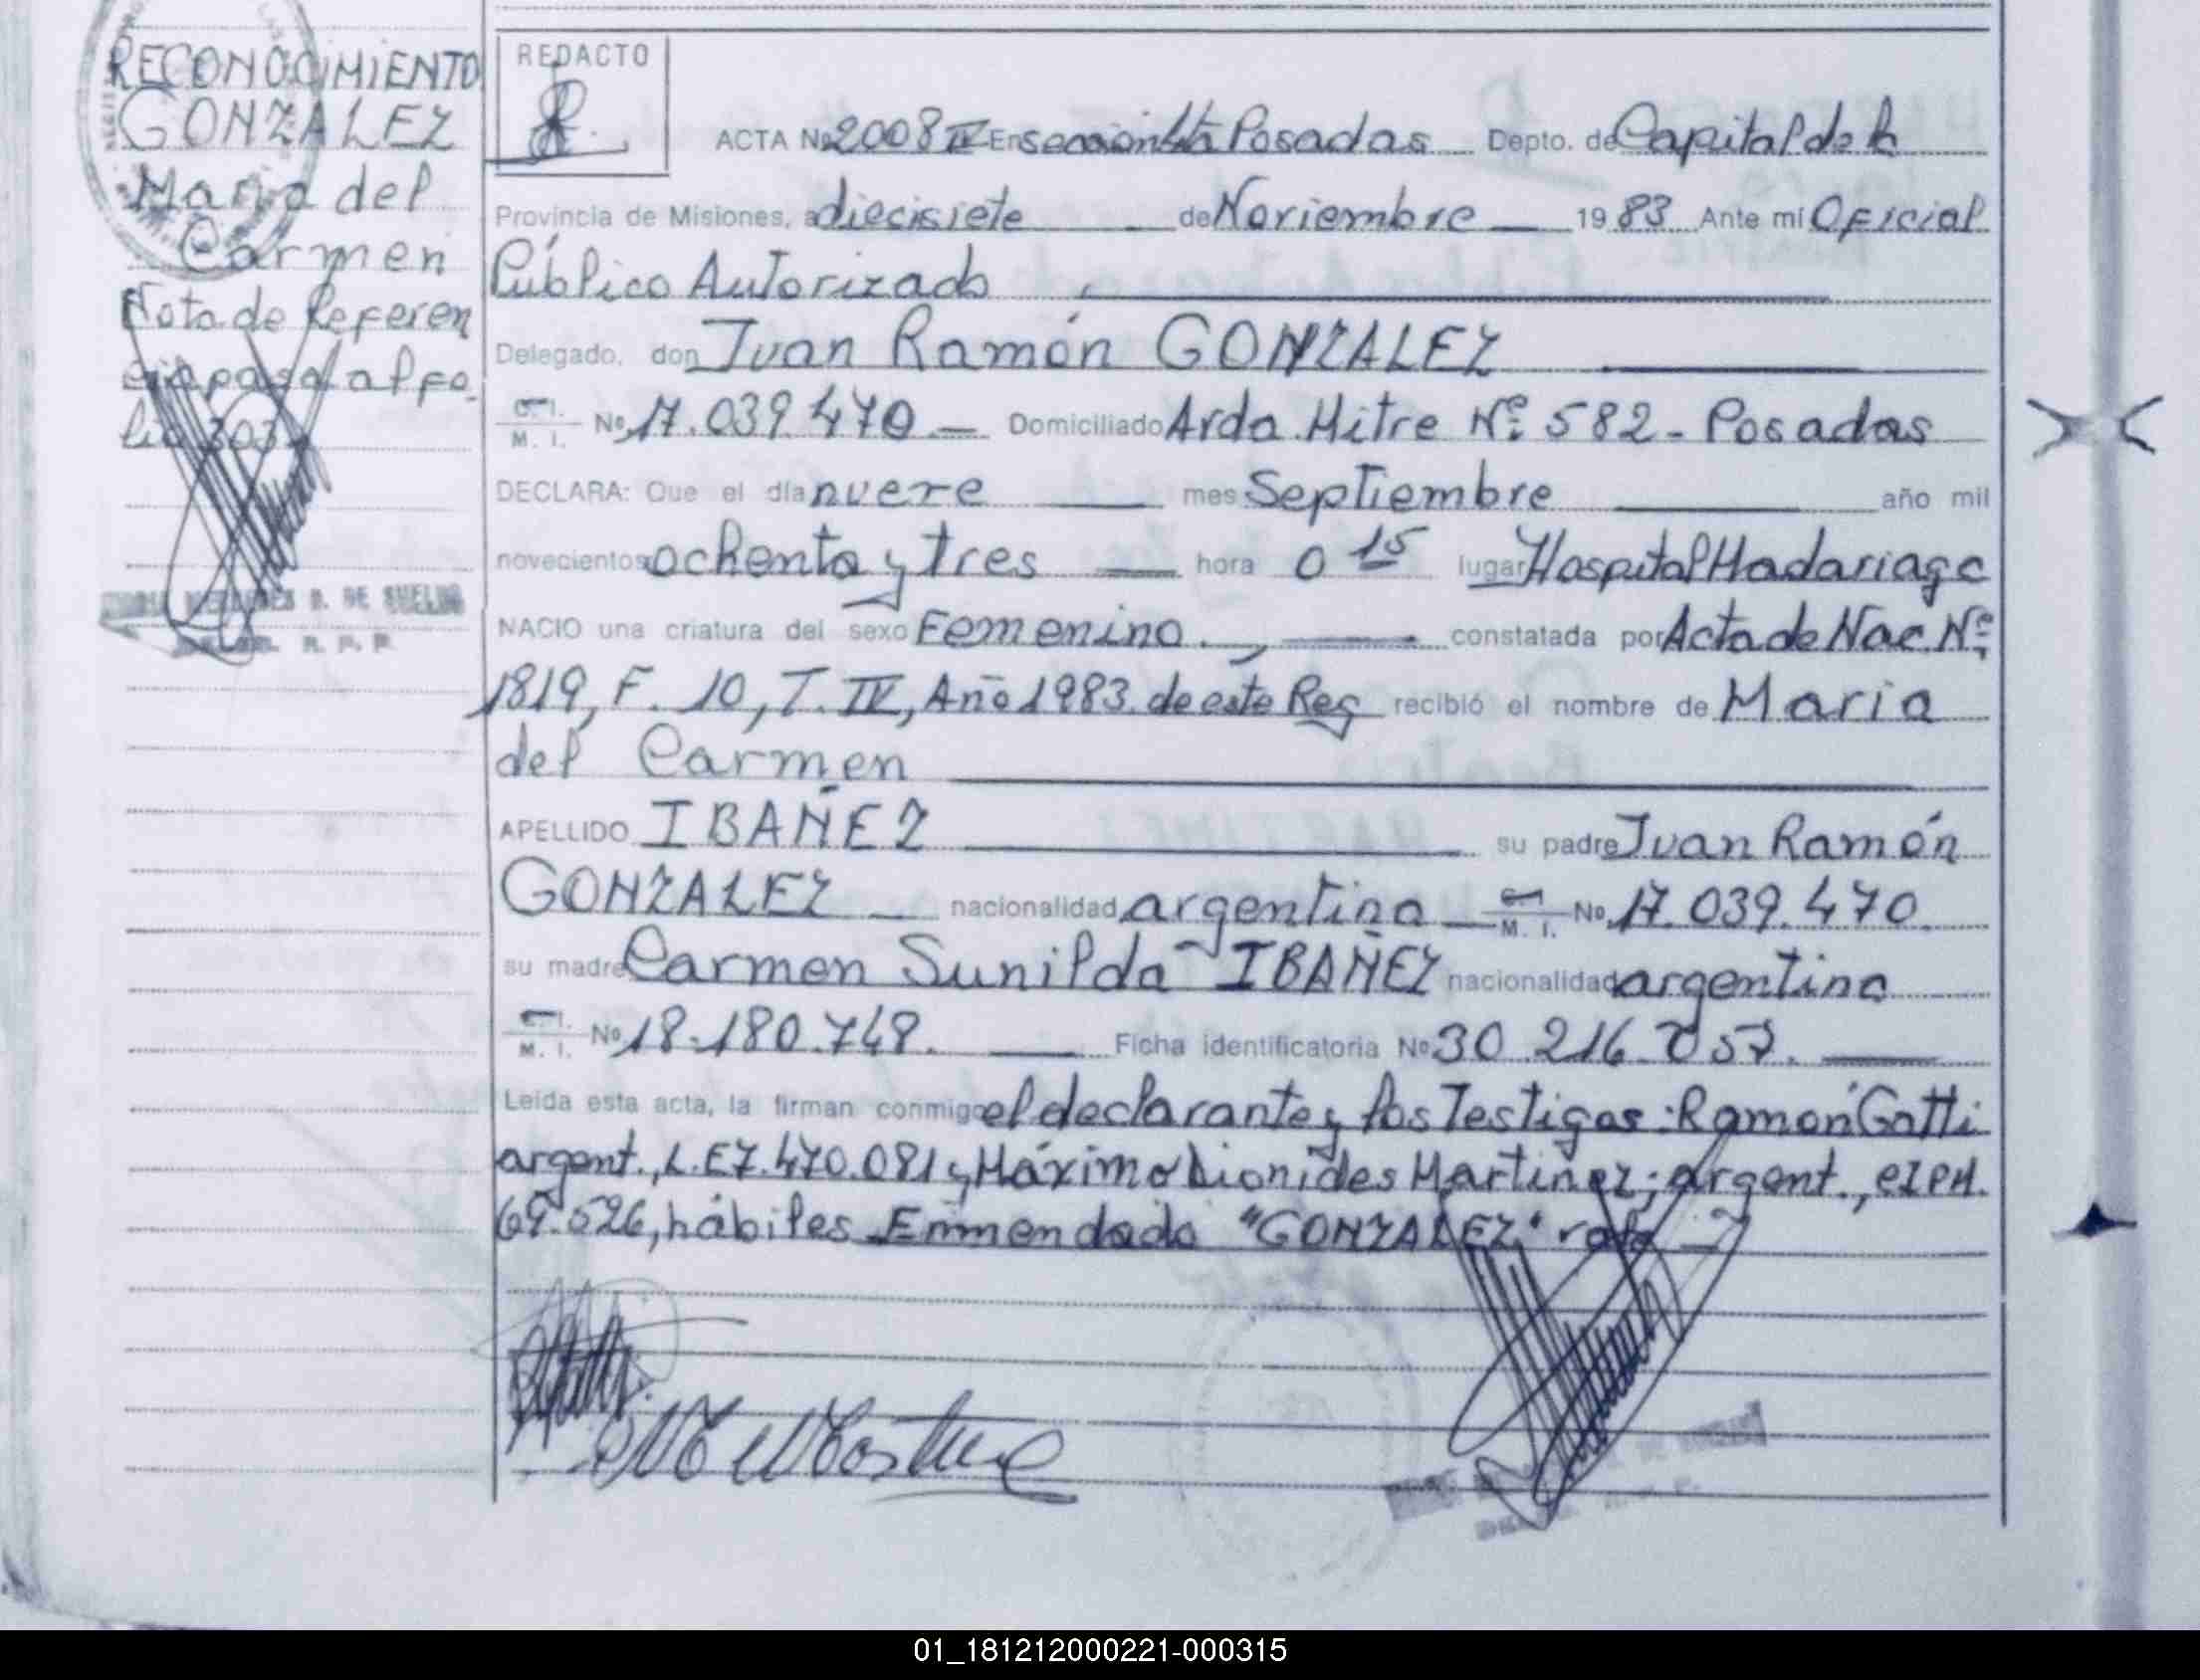 RECONOCIMIENTO
GONZALEZ
Maria del
Carmen
Nota de Referen
cia pasa al fo
lio 303
DE SUELDO
R. P. P.
REDACTO
ACTA No 2008 IV En sección 4ta Posadas Depto. de Capital de la
Provincia de Misiones, a diecisiete de Noviembre 19 83 Ante mi Oficial
Público Autorizado
Delegado, don Juan Ramón GONZALEZ
C. I. M. I. No. 17.039.470 Domiciliado Avda. Mitre Nº 582 - Posadas
DECLARA: Que el día nueve mes Septiembre año mil
novecientos ochenta y tres hora 0 15 lugar Hospital Madariaga
NACIO una criatura del sexo Femenino, constatada por Acta de Nac. Nº
1819, F. 10, T. IV, Año 1983. de este Reg recibió el nombre de Maria
del Carmen
APELLIDO IBAÑEZ su padre Juan Ramón
GONZALEZ nacionalidad argentina C. I. M. I. No. 17.039.470.
su madre Carmen Sunilda IBAÑEZ nacionalidad argentina
C. I. M. I. No 18.180.748. Ficha identificatoria No 30.216.057.
Leída esta acta, la firman conmigo el declarante y los Testigos: Ramon Gatti
argent., L.E 7.470.081 y Máximo Lionides Martinez; argent., CIPM.
69.526, hábiles Enmendado "GONZALEZ" vale
01_181212000221-000315